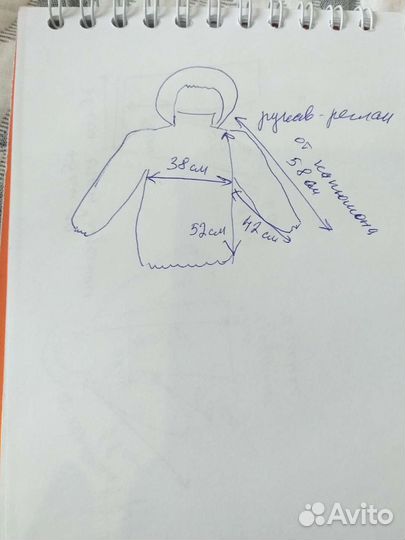 рукав-реглан
от капюшона
58см
38см
52см
42см
Avito